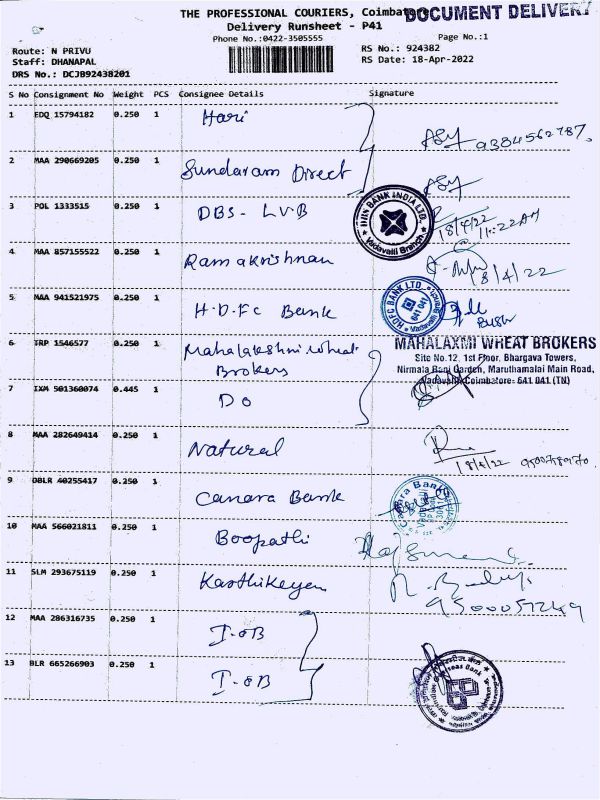 THE PROFESSIONAL COURIERS, Coimbato
DOCUMENT DELIVERY
Delivery Runsheet - P41
Phone No.:0422-3505555
Page No.:1
Route: N PRIVU
RS No.: 924382
Staff: DHANAPAL
RS Date: 18-Apr-2022
DRS No.: DCJB92438201
S No Consignment No Weight PCS Consignee Details Signature
1 EDQ 15794182 0.250 1 Hari
9384562787.
2 MAA 290669205 0.250 1 Sundaram Direct
3 POL 1333515 0.250 1 DBS - LVB
BANK INDIA LTD.
Vadavalli Branch
18/4/22
11:22AM
4 MAA 857155522 0.250 1 Ramakrishnan
18/4/22
5 MAA 941521975 0.250 1 H.D.Fc Bank
HDFC BANK LTD.
641 041
6 TRP 1546577 0.250 1 Mahalakshmi wheat
Brokers
MAHALAXMI WHEAT BROKERS
Site No.12, 1st Floor, Bhargava Towers,
Nirmala Rani Garden, Maruthamalai Main Road,
Vadavalli, Coimbatore- 641 041 (TN)
7 IXM 501360074 0.445 1 Do
8 MAA 282649414 0.250 1 Natural
18/4/22
9 OBLR 40255417 0.250 1 Canara Bank
Canara Bank
10 MAA 566021811 0.250 1 Boopathi
11 SLM 293675119 0.250 1 Karthikeyen
12 MAA 286316735 0.250 1 I-OB
13 BLR 665266903 0.250 1 I-OB
Overseas Bank